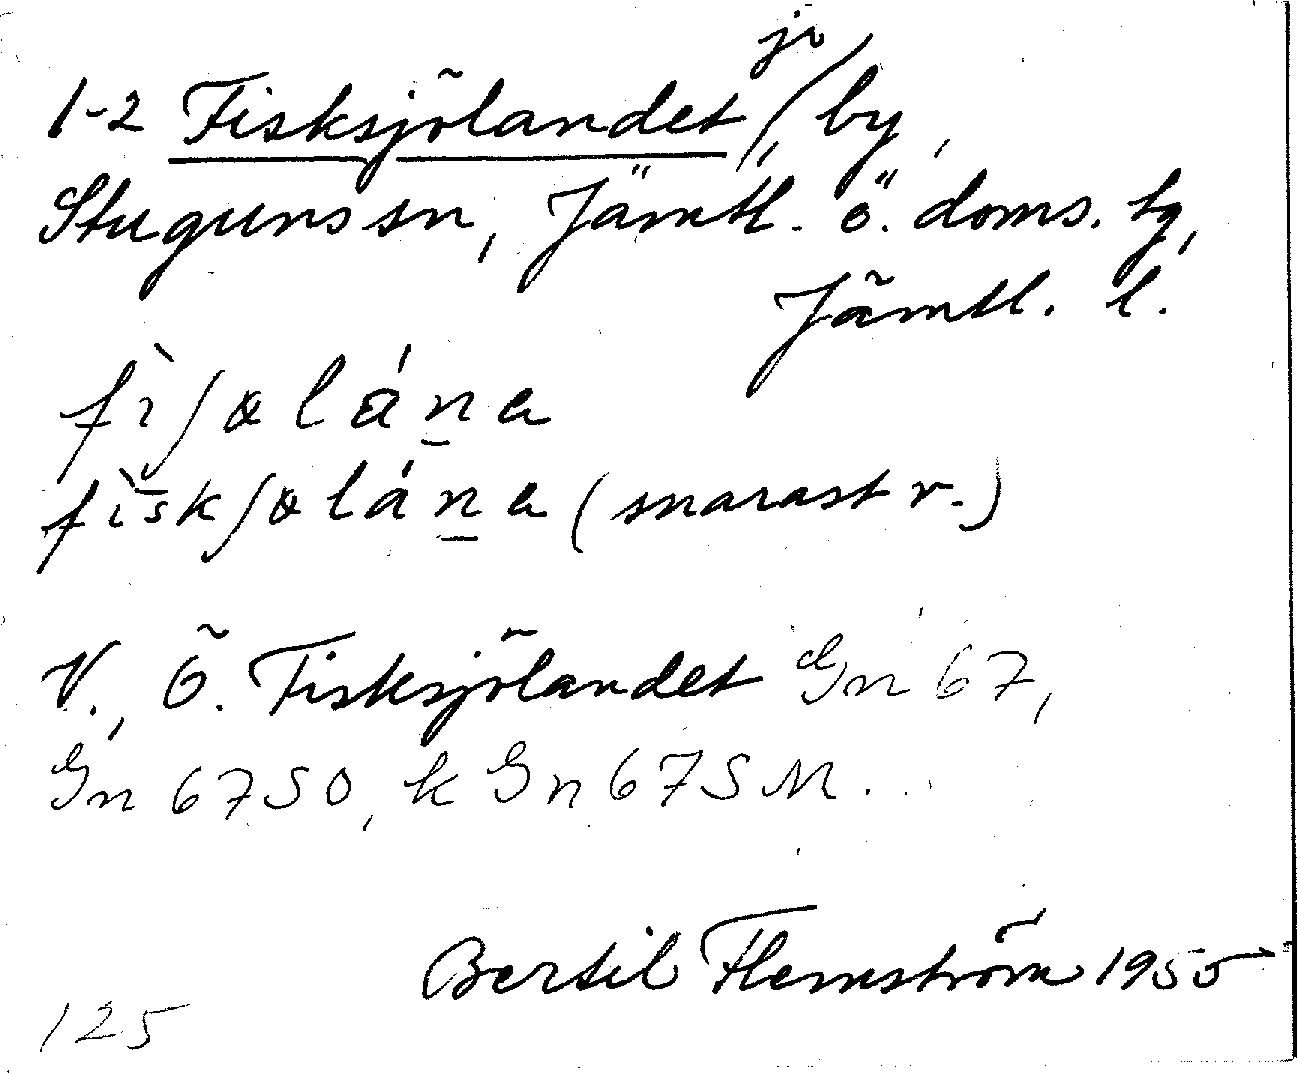 jo
1-2 Fisksjölandet, by,
Stugun sn, Jämtl. ö. doms. tg,
Jämtl. l.
fìʃøláṉa
fìskʃøláṉa (snarast v.)
V., Ö. Fisksjölandet Gn 67,
Gn 67SO, k Gn 67SM...
Bertil Flemström 1955
125